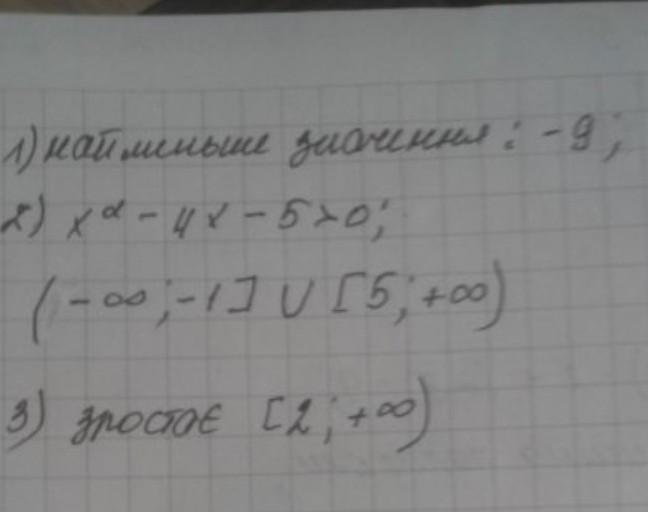 1) найменьше значення: -9;
2) x² - 4x - 5 > 0;
(-∞; -1] ∪ [5; +∞)
3) зростає [2; +∞)